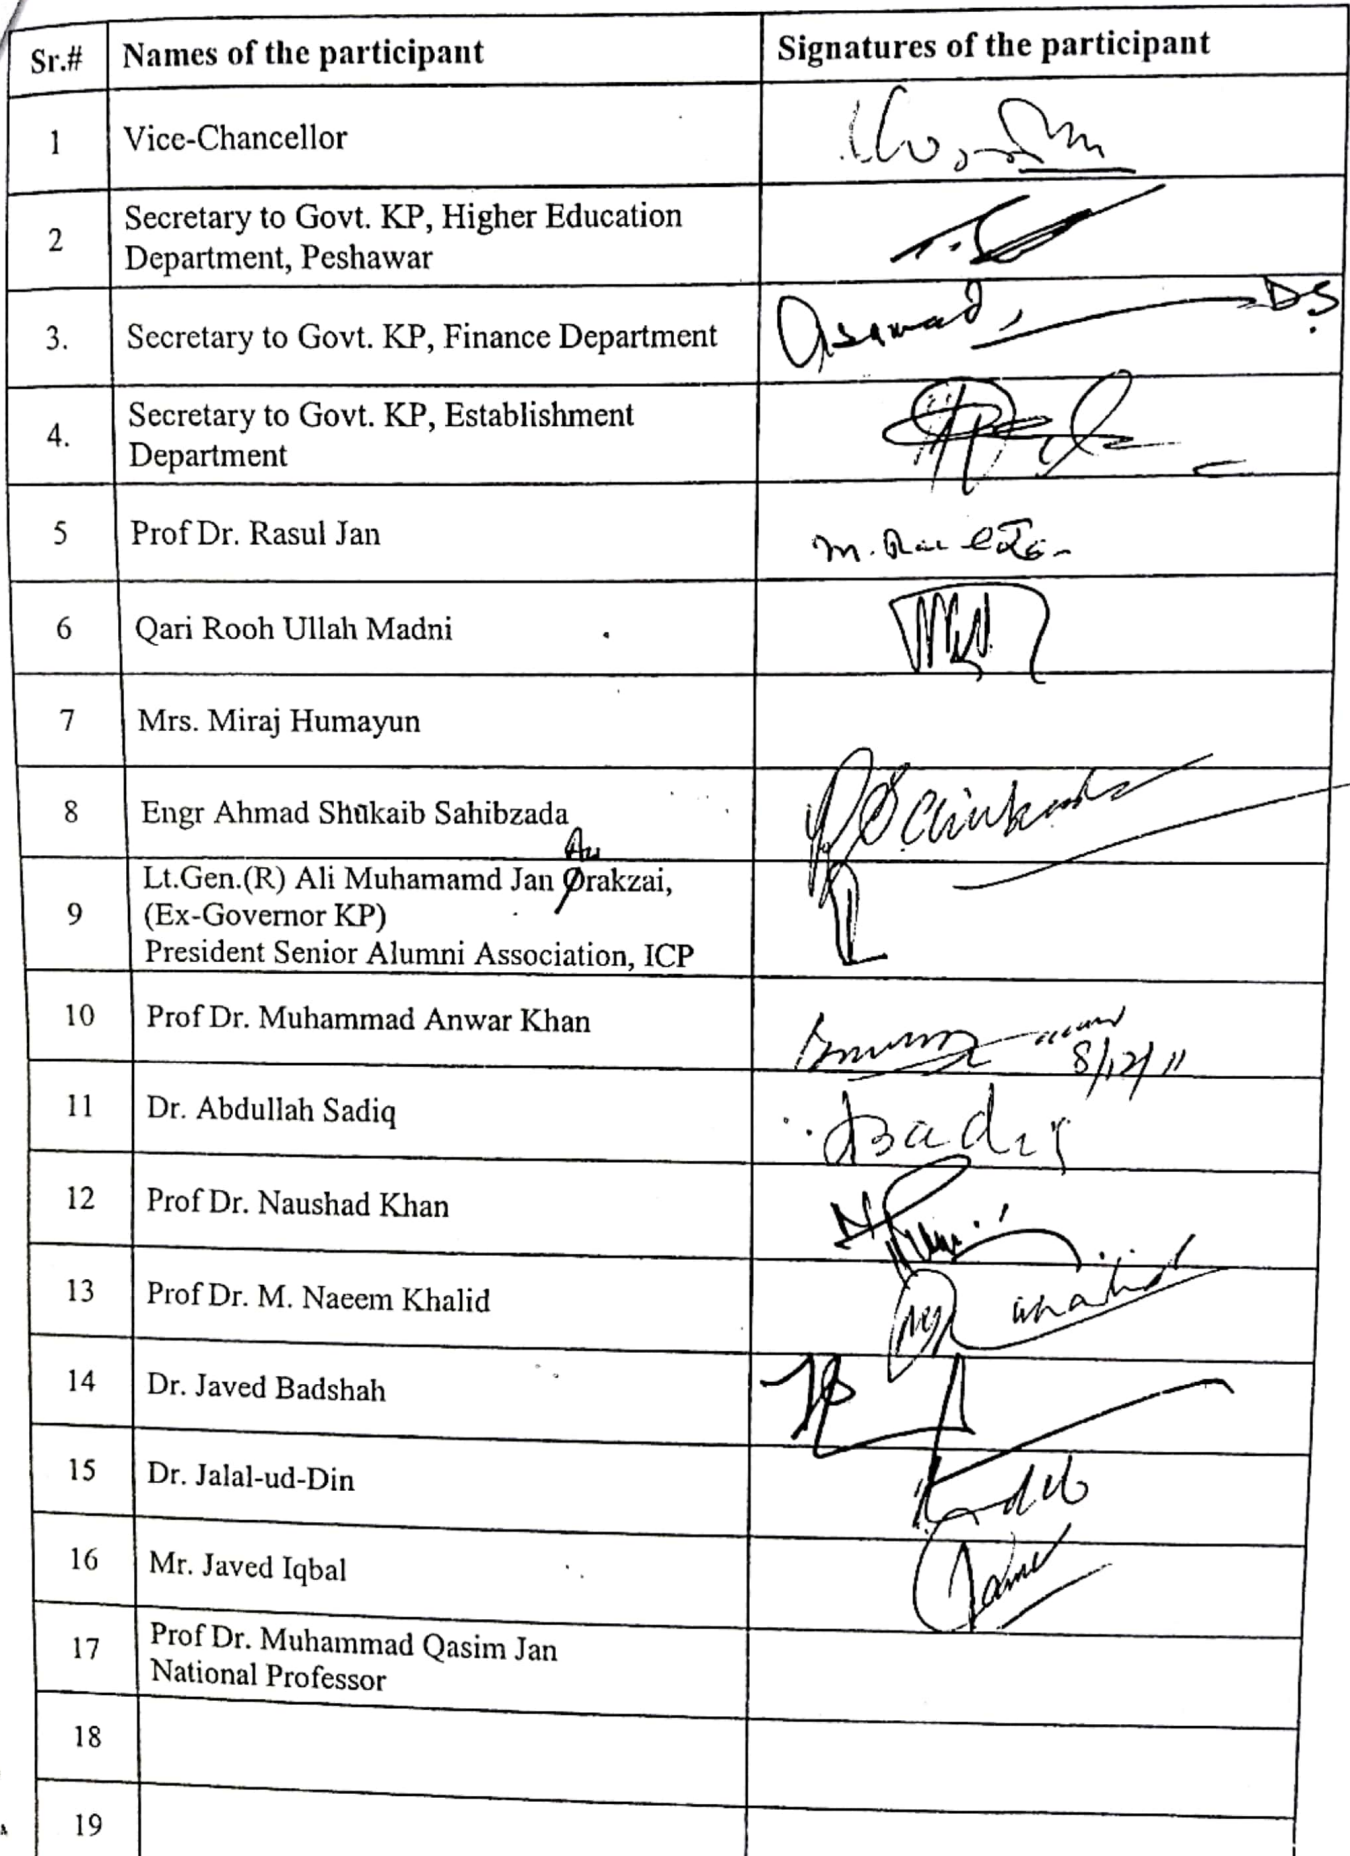 Sr.# Names of the participant Signatures of the participant
1 Vice-Chancellor
2 Secretary to Govt. KP, Higher Education
Department, Peshawar
3. Secretary to Govt. KP, Finance Department
4. Secretary to Govt. KP, Establishment
Department
5 Prof Dr. Rasul Jan
6 Qari Rooh Ullah Madni
7 Mrs. Miraj Humayun
8 Engr Ahmad Shukaib Sahibzada
9 Lt.Gen.(R) Ali Muhamamd Jan Orakzai,
(Ex-Governor KP)
President Senior Alumni Association, ICP
10 Prof Dr. Muhammad Anwar Khan
8/12/11
11 Dr. Abdullah Sadiq
12 Prof Dr. Naushad Khan
13 Prof Dr. M. Naeem Khalid
14 Dr. Javed Badshah
15 Dr. Jalal-ud-Din
16 Mr. Javed Iqbal
17 Prof Dr. Muhammad Qasim Jan
National Professor
18
19